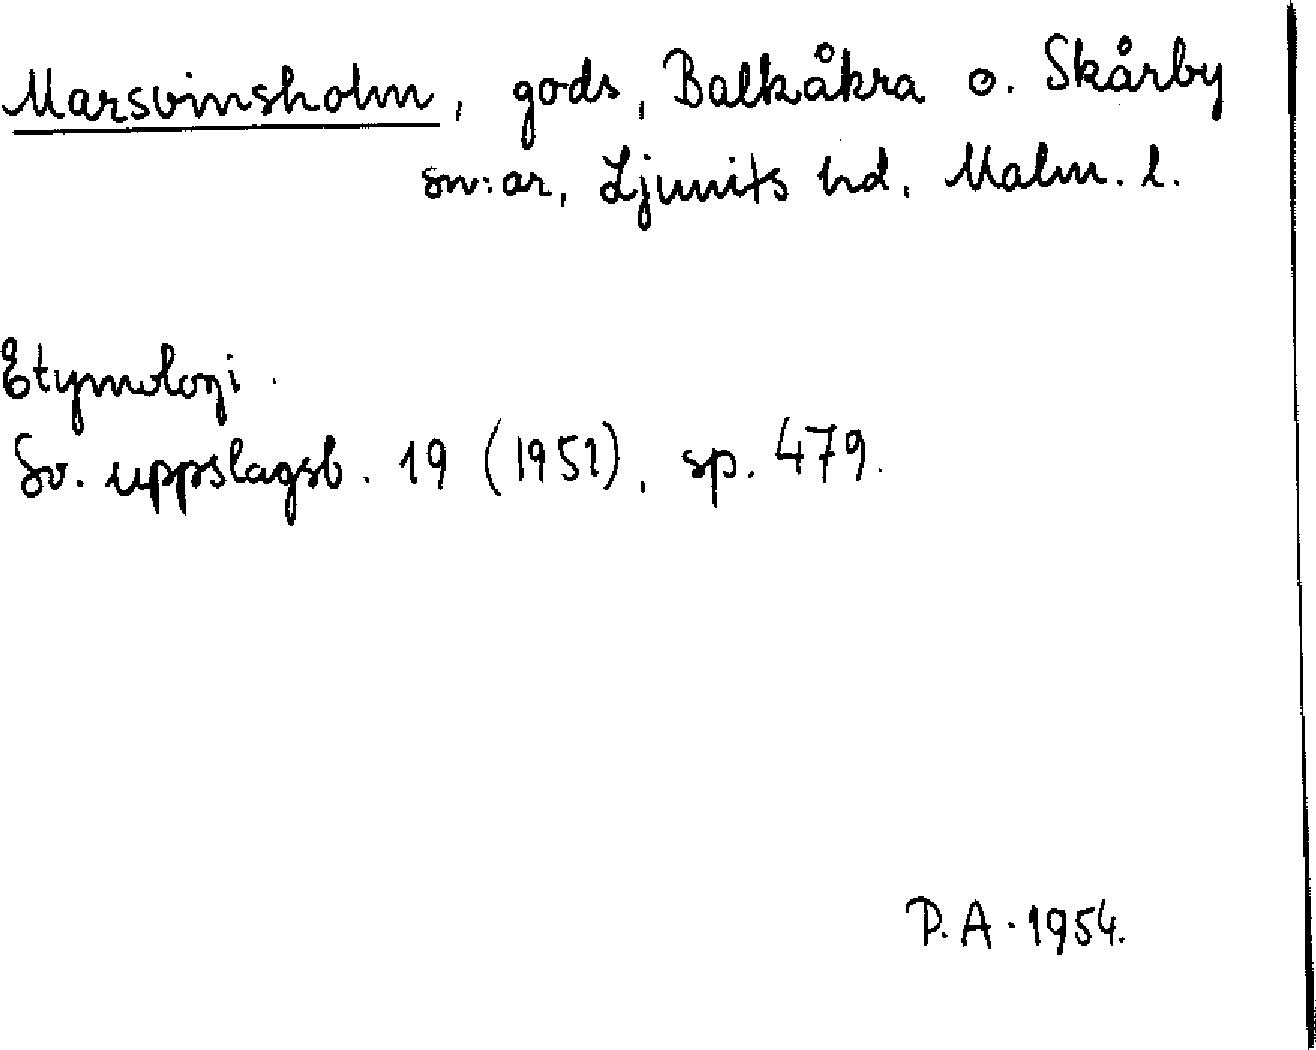 Marsvinsholm, gods, Balkåkra o. Skårby
sn:ar, Ljunits hd, Malm. l.
Etymologi.
Sv. uppslagsb. 19 (1951), sp. 479.
P.A. 1954.